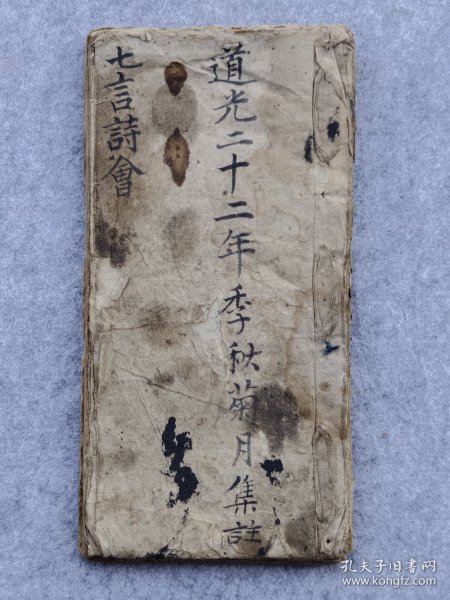 道光二十二年季秋菊月集註
七言詩會
孔夫子旧书网
www.kongfz.com